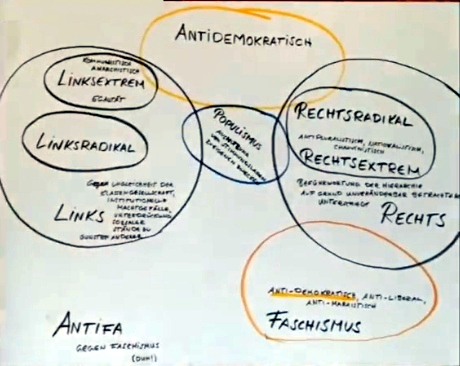 ANTIDEMOKRATISCH
KOMMUNISTISCH
ANARCHISTISCH
LINKSEXTREM
EGALITÄR
LINKSRADIKAL
GEGEN UNGLEICHHEIT DER
KLASSENGESELLSCHAFT,
INSTITUTIONELLE
MACHTGEFÄLLE,
UNTERDRÜCKUNG
SOZIALER
STÄNDE ZU
GUNSTEN ANDERER
LINKS
POPULISMUS
AUSNUTZUNG
VON STIMMUNGSLAGEN
RECHTSRADIKAL
ANTIPLURALISTISCH, NATIONALISTISCH,
CHAUVINISTISCH
RECHTSEXTREM
DER HIERARCHIE
AUF GRUND UNVERÄNDERBAR BETRACHTETER
UNTERSCHIEDE
RECHTS
ANTI-DEMOKRATISCH, ANTI-LIBERAL,
ANTI-MARXISTISCH
FASCHISMUS
ANTIFA
GEGEN FASCHISMUS
(DUH!)